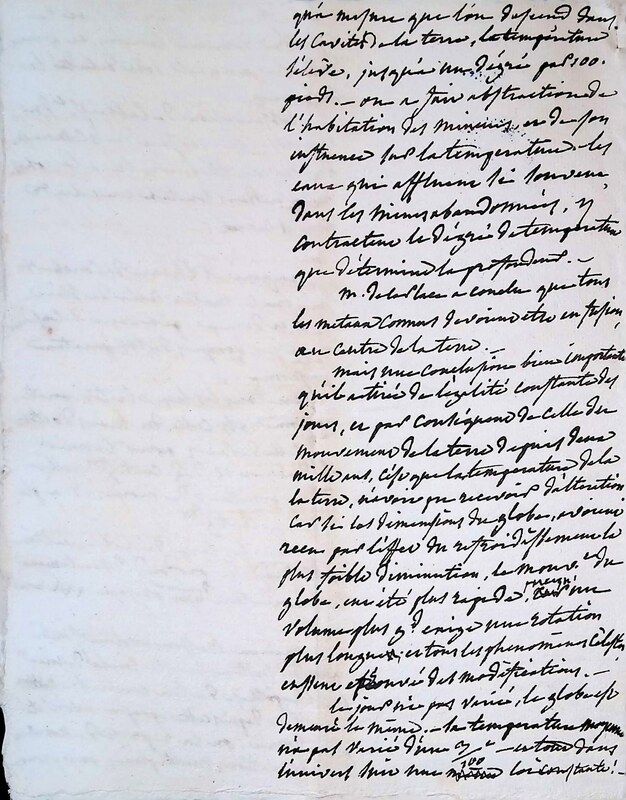 qu'à mesure que l'on descend dans
les Cavités de la terre, la température
s'élève, jusqu'à un dégré par 100.
pieds. — on a fait abstraction de
l'habitation des mineurs, et de son
influence sur la température — les
eaux qui affluent si souvent
dans les mines abandonnées, y
contractent le dégré de température
que détermine la profondeur. —
m. de la Place a conclu que tous
les metaux connus devoient etre en fusion,
au Centre de la terre. —
mais une Conclusion bien importante
qu'il a tirée de l'égalité constante des
jours, et par Conséquent de celle du
mouvement de la terre depuis deux
mille ans, c'est que la temperature de la
la terre, n'a pu recevoir d'altération
Car si les dimensions du globe, avoient
recu par l'effet du refroidissement la
plus foible diminution, le mouv.t du
globe, eut été plus rapide, puisqu'
un
volume plus g.d exige une rotation
plus longue, et tous les phenomènes Célestes
eussent éprouvé des modifications. —
le jour n'a pas varié, le globe est
demeuré le même. — la temperature moyenne
n'a pas varié d'une — et tout dans
l'univers suit une loi constante! —